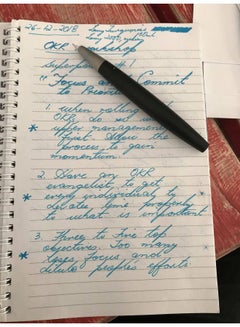 26-12-2018
OKR Workshop
Superpower #1
" Focus and Commit
to Priorities
1. When rolling out
OKRs do so with
* upper management
first. Allow the
process to gain
momentum.
2. Have an OKR
evangelist, to get
* every individual to
dedicate time properly
to what is important
3. Three to five top
* objectives. Too many
lose focus and
dilute people's efforts